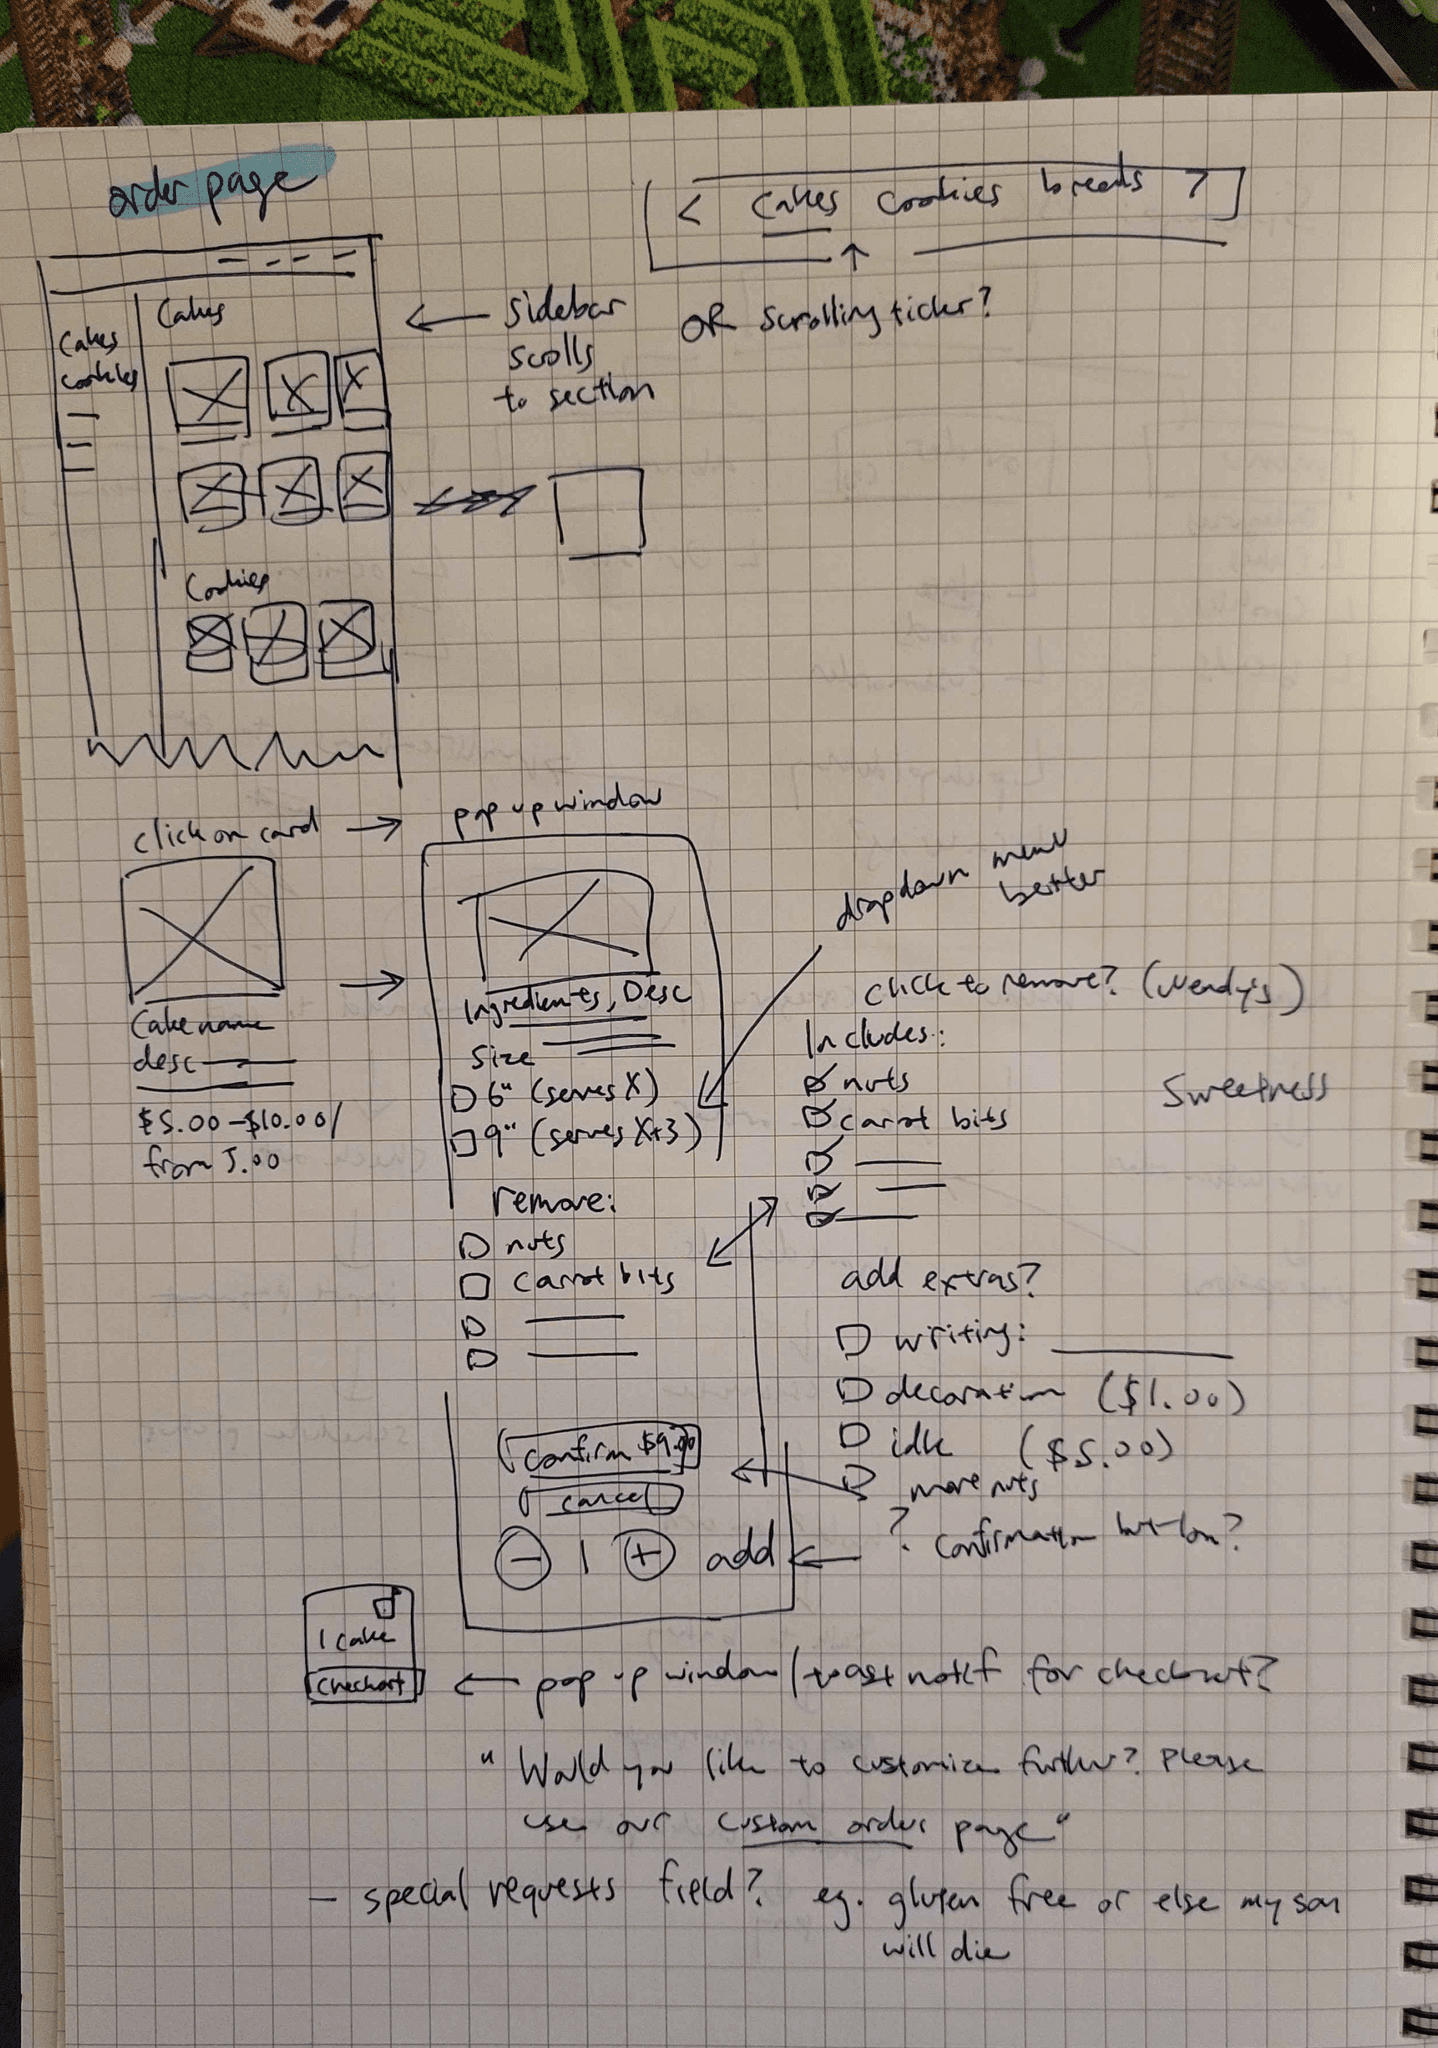 order page
< cakes cookies breads >
OR scrolling ticker?
Cakes
cookies
Cakes
sidebar
scrolls
to section
Cookies
click on card
pop up window
Cake name
desc
$5.00-$10.00/
from 5.00
Ingredients, Desc
Size
6" (serves X)
9" (serves X+3)
remove:
nuts
carrot bits
confirm $9.00
cancel
- 1 + add
dropdown menu
better
click to remove? (Wendy's)
Includes:
nuts
carrot bits
Sweetness
add extras?
writing:
decoration ($1.00)
idk ($5.00)
more nuts
? confirmation button?
1 cake
checkout
pop up window/toast notif for checkout?
"Would you like to customize further? Please
use our custom order page"
- special requests field? eg. gluten free or else my son
will die